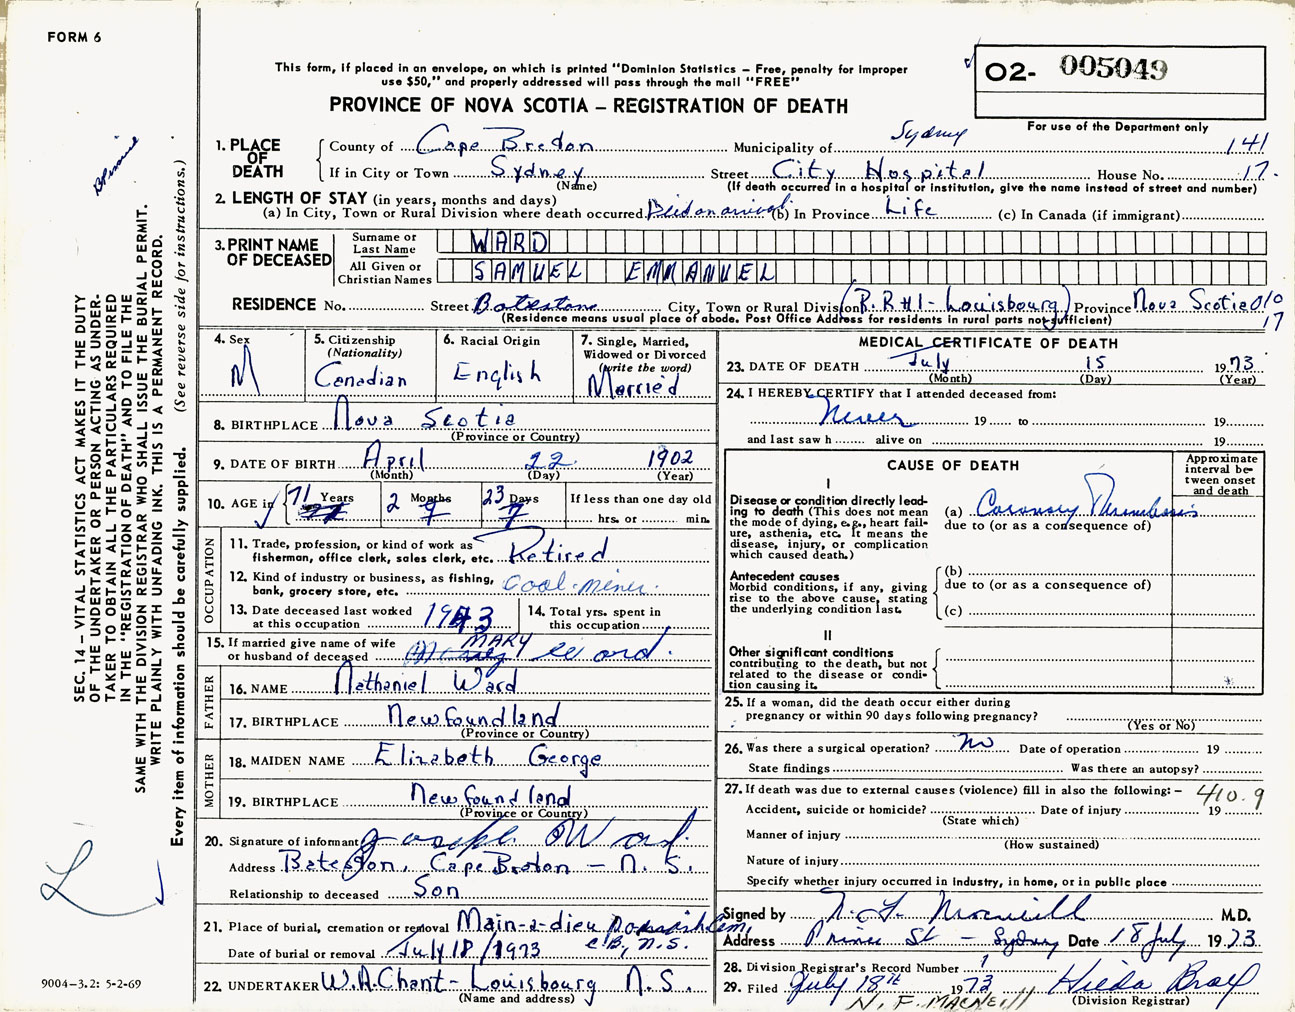 FORM 6
This form, if placed in an envelope, on which is printed "Dominion Statistics – Free, penalty for improper
use $50," and properly addressed will pass through the mail "FREE"
O2- 005049
PROVINCE OF NOVA SCOTIA – REGISTRATION OF DEATH
For use of the Department only
1. PLACE OF DEATH
County of Cape Breton Municipality of Sydney 141
If in City or Town Sydney Street City Hospital House No. 17.
(Name) (If death occurred in a hospital or institution, give the name instead of street and number)
2. LENGTH OF STAY (in years, months and days)
(a) In City, Town or Rural Division where death occurred (b) In Province Life (c) In Canada (if immigrant)
3. PRINT NAME OF DECEASED
Surname or Last Name WARD
All Given or Christian Names SAMUEL EMMANUEL
RESIDENCE No. Street Bateston City, Town or Rural Division (R.R#1-Louisbourg) Province Nova Scotia 010
(Residence means usual place of abode. Post Office Address for residents in rural parts not sufficient) 17
4. Sex M
5. Citizenship (Nationality) Canadian
6. Racial Origin English
7. Single, Married, Widowed or Divorced (write the word) Married
8. BIRTHPLACE Nova Scotia
(Province or Country)
9. DATE OF BIRTH April 22 1902
(Month) (Day) (Year)
10. AGE in 71 Years 2 Months 23 Days If less than one day old
hrs. or min.
OCCUPATION
11. Trade, profession, or kind of work as
fisherman, office clerk, sales clerk, etc. Retired
12. Kind of industry or business, as fishing,
bank, grocery store, etc. Coal-miner.
13. Date deceased last worked
at this occupation 1943
14. Total yrs. spent in
this occupation
15. If married give name of wife
or husband of deceased MARY Ward.
FATHER
16. NAME Nathaniel Ward
17. BIRTHPLACE Newfoundland
(Province or Country)
MOTHER
18. MAIDEN NAME Elizabeth George
19. BIRTHPLACE Newfoundland
(Province or Country)
20. Signature of informant Joseph Ward
Address Bateston, Cape Breton – N.S.
Relationship to deceased Son
21. Place of burial, cremation or removal Main-a-dieu
C.B., N.S.
Date of burial or removal July 18/1973
22. UNDERTAKER W.A.Chant-Louisbourg N.S.
(Name and address)
MEDICAL CERTIFICATE OF DEATH
23. DATE OF DEATH July 15 1973
(Month) (Day) (Year)
24. I HEREBY CERTIFY that I attended deceased from:
Never 19 to 19
and last saw h alive on 19
CAUSE OF DEATH
Approximate interval between onset and death
I
Disease or condition directly lead-
ing to death (This does not mean
the mode of dying, e.g., heart fail-
ure, asthenia, etc. It means the
disease, injury, or complication
which caused death.)
(a) Coronary Thrombosis
due to (or as a consequence of)
Antecedent causes
Morbid conditions, if any, giving
rise to the above cause, stating
the underlying condition last.
(b)
due to (or as a consequence of)
(c)
II
Other significant conditions
contributing to the death, but not
related to the disease or condi-
tion causing it.
25. If a woman, did the death occur either during
pregnancy or within 90 days following pregnancy?
(Yes or No)
26. Was there a surgical operation? no Date of operation 19
State findings Was there an autopsy?
27. If death was due to external causes (violence) fill in also the following: – 410.9
Accident, suicide or homicide? Date of injury 19
(State which)
Manner of injury
(How sustained)
Nature of injury
Specify whether injury occurred in industry, in home, or in public place
Signed by N. F. Macneill M.D.
Address Prince St – Sydney Date 18 July 1973.
28. Division Registrar's Record Number
29. Filed July 18th 1973 Hilda
N. F. MACNEILL (Division Registrar)
SEC. 14 – VITAL STATISTICS ACT MAKES IT THE DUTY
OF THE UNDERTAKER OR PERSON ACTING AS UNDER-
TAKER TO OBTAIN ALL THE PARTICULARS REQUIRED
IN THE "REGISTRATION OF DEATH" AND TO FILE THE
SAME WITH THE DIVISION REGISTRAR WHO SHALL ISSUE THE BURIAL PERMIT.
WRITE PLAINLY WITH UNFADING INK. THIS IS A PERMANENT RECORD.
Every item of information should be carefully supplied. (See reverse side for instructions.)
9004-3.2: 5-2-69